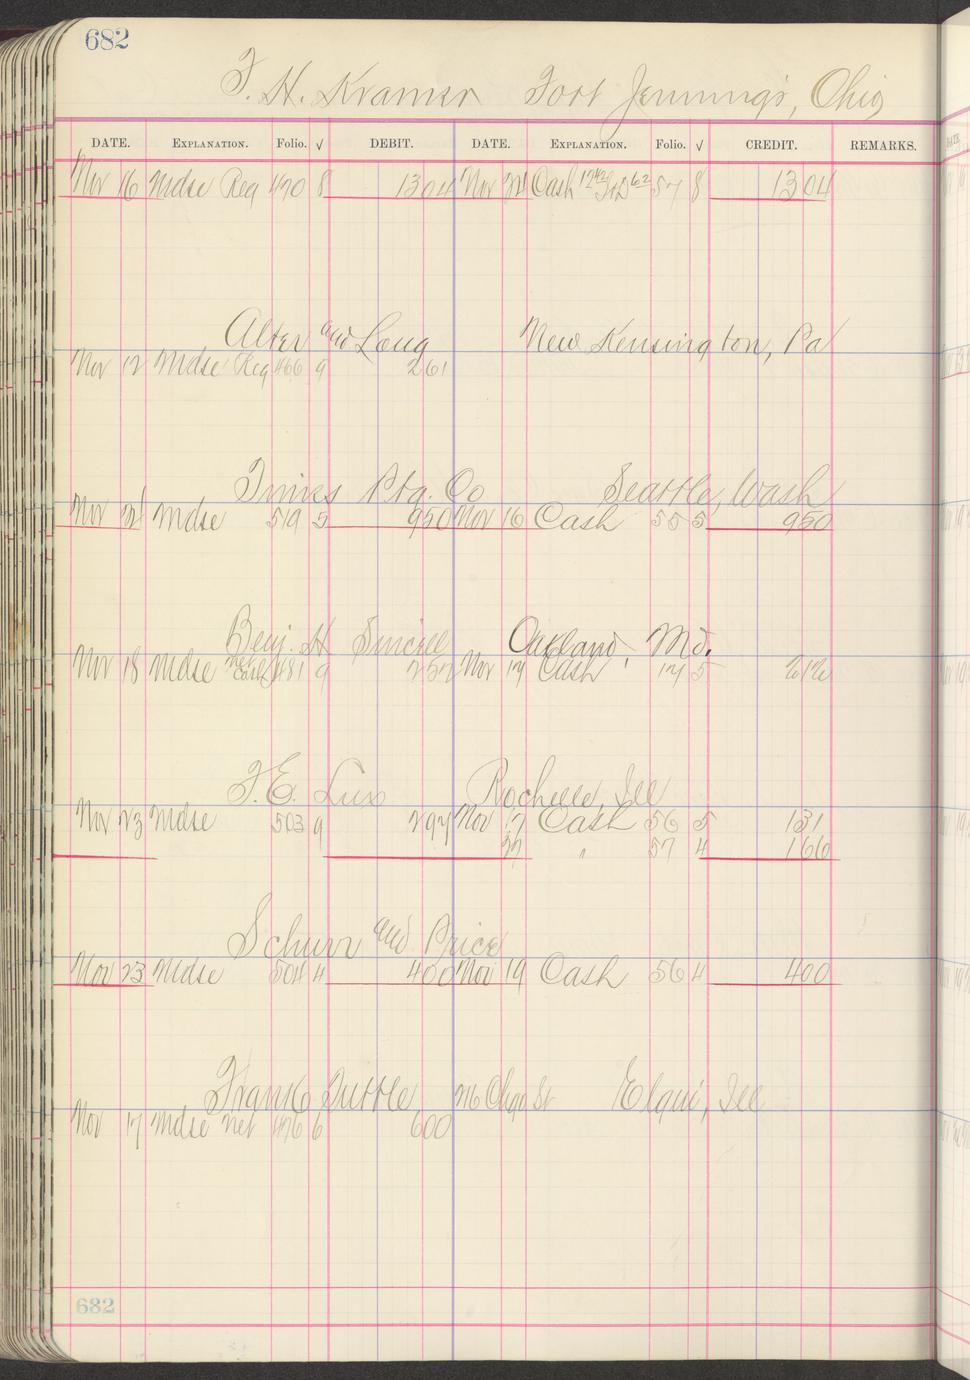 682
F. H. Kramer Fort Jennings, Ohio
DATE. EXPLANATION. Folio. √ DEBIT. DATE. EXPLANATION. Folio. √ CREDIT. REMARKS.
Nov 16 Mdse Reg 470 8 13 04 Nov 24 Cash 12 42 62 57 8 13 04
Alter and Long New Kensington, Pa
Nov 12 Mdse Reg 466 9 2 61
Times Ptg. Co Seattle, Wash
Nov Mdse 519 5 9 50 Nov 16 Cash 55 5 9 50
Benj. H Sincell Oakland, Md.
Nov 18 Mdse net 481 9 2 52 Nov 17 Cash 5
F. E. Lux Rochelle, Ill
Nov 23 Mdse 503 9 2 97 Nov 17 Cash 56 5 1 31
" 57 4 1 66
Schurr and Price
Nov 23 Mdse 504 4 4 00 Nov 19 Cash 56 4 4 00
Frank Tuttle, Chgo St Elgin, Ill
Nov 17 Mdse net 476 6 6 00
682